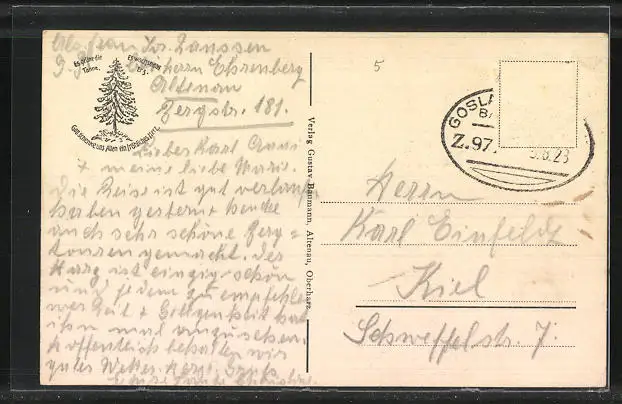 Abs. Frau Dr. Janssen
bei Herrn Ehrenberg
Altenau
Bergstr. 181.
Es grüne die Tanne,
Es wachse das Erz,
Gott schenke uns Allen ein fröhliches Herz.
Lieber Karl
+ meine liebe Marie.
Die Reise ist gut verlaufen
haben gestern + heute
auch sehr schöne Berg=
touren gemacht. Der
Harz ist einzig schön
und jedem zu empfehlen
wer Zeit + Gelegenheit hat
ihn mal anzusehen.
Hoffentlich behalten wir
gutes Wetter. Herzl. Gruß
Verlag Gustav Baumann, Altenau, Oberharz.
5
GOSLA
Z.97.
5.8.23
Herrn
Karl Einfeldt
Kiel
Schweffelstr. 7.